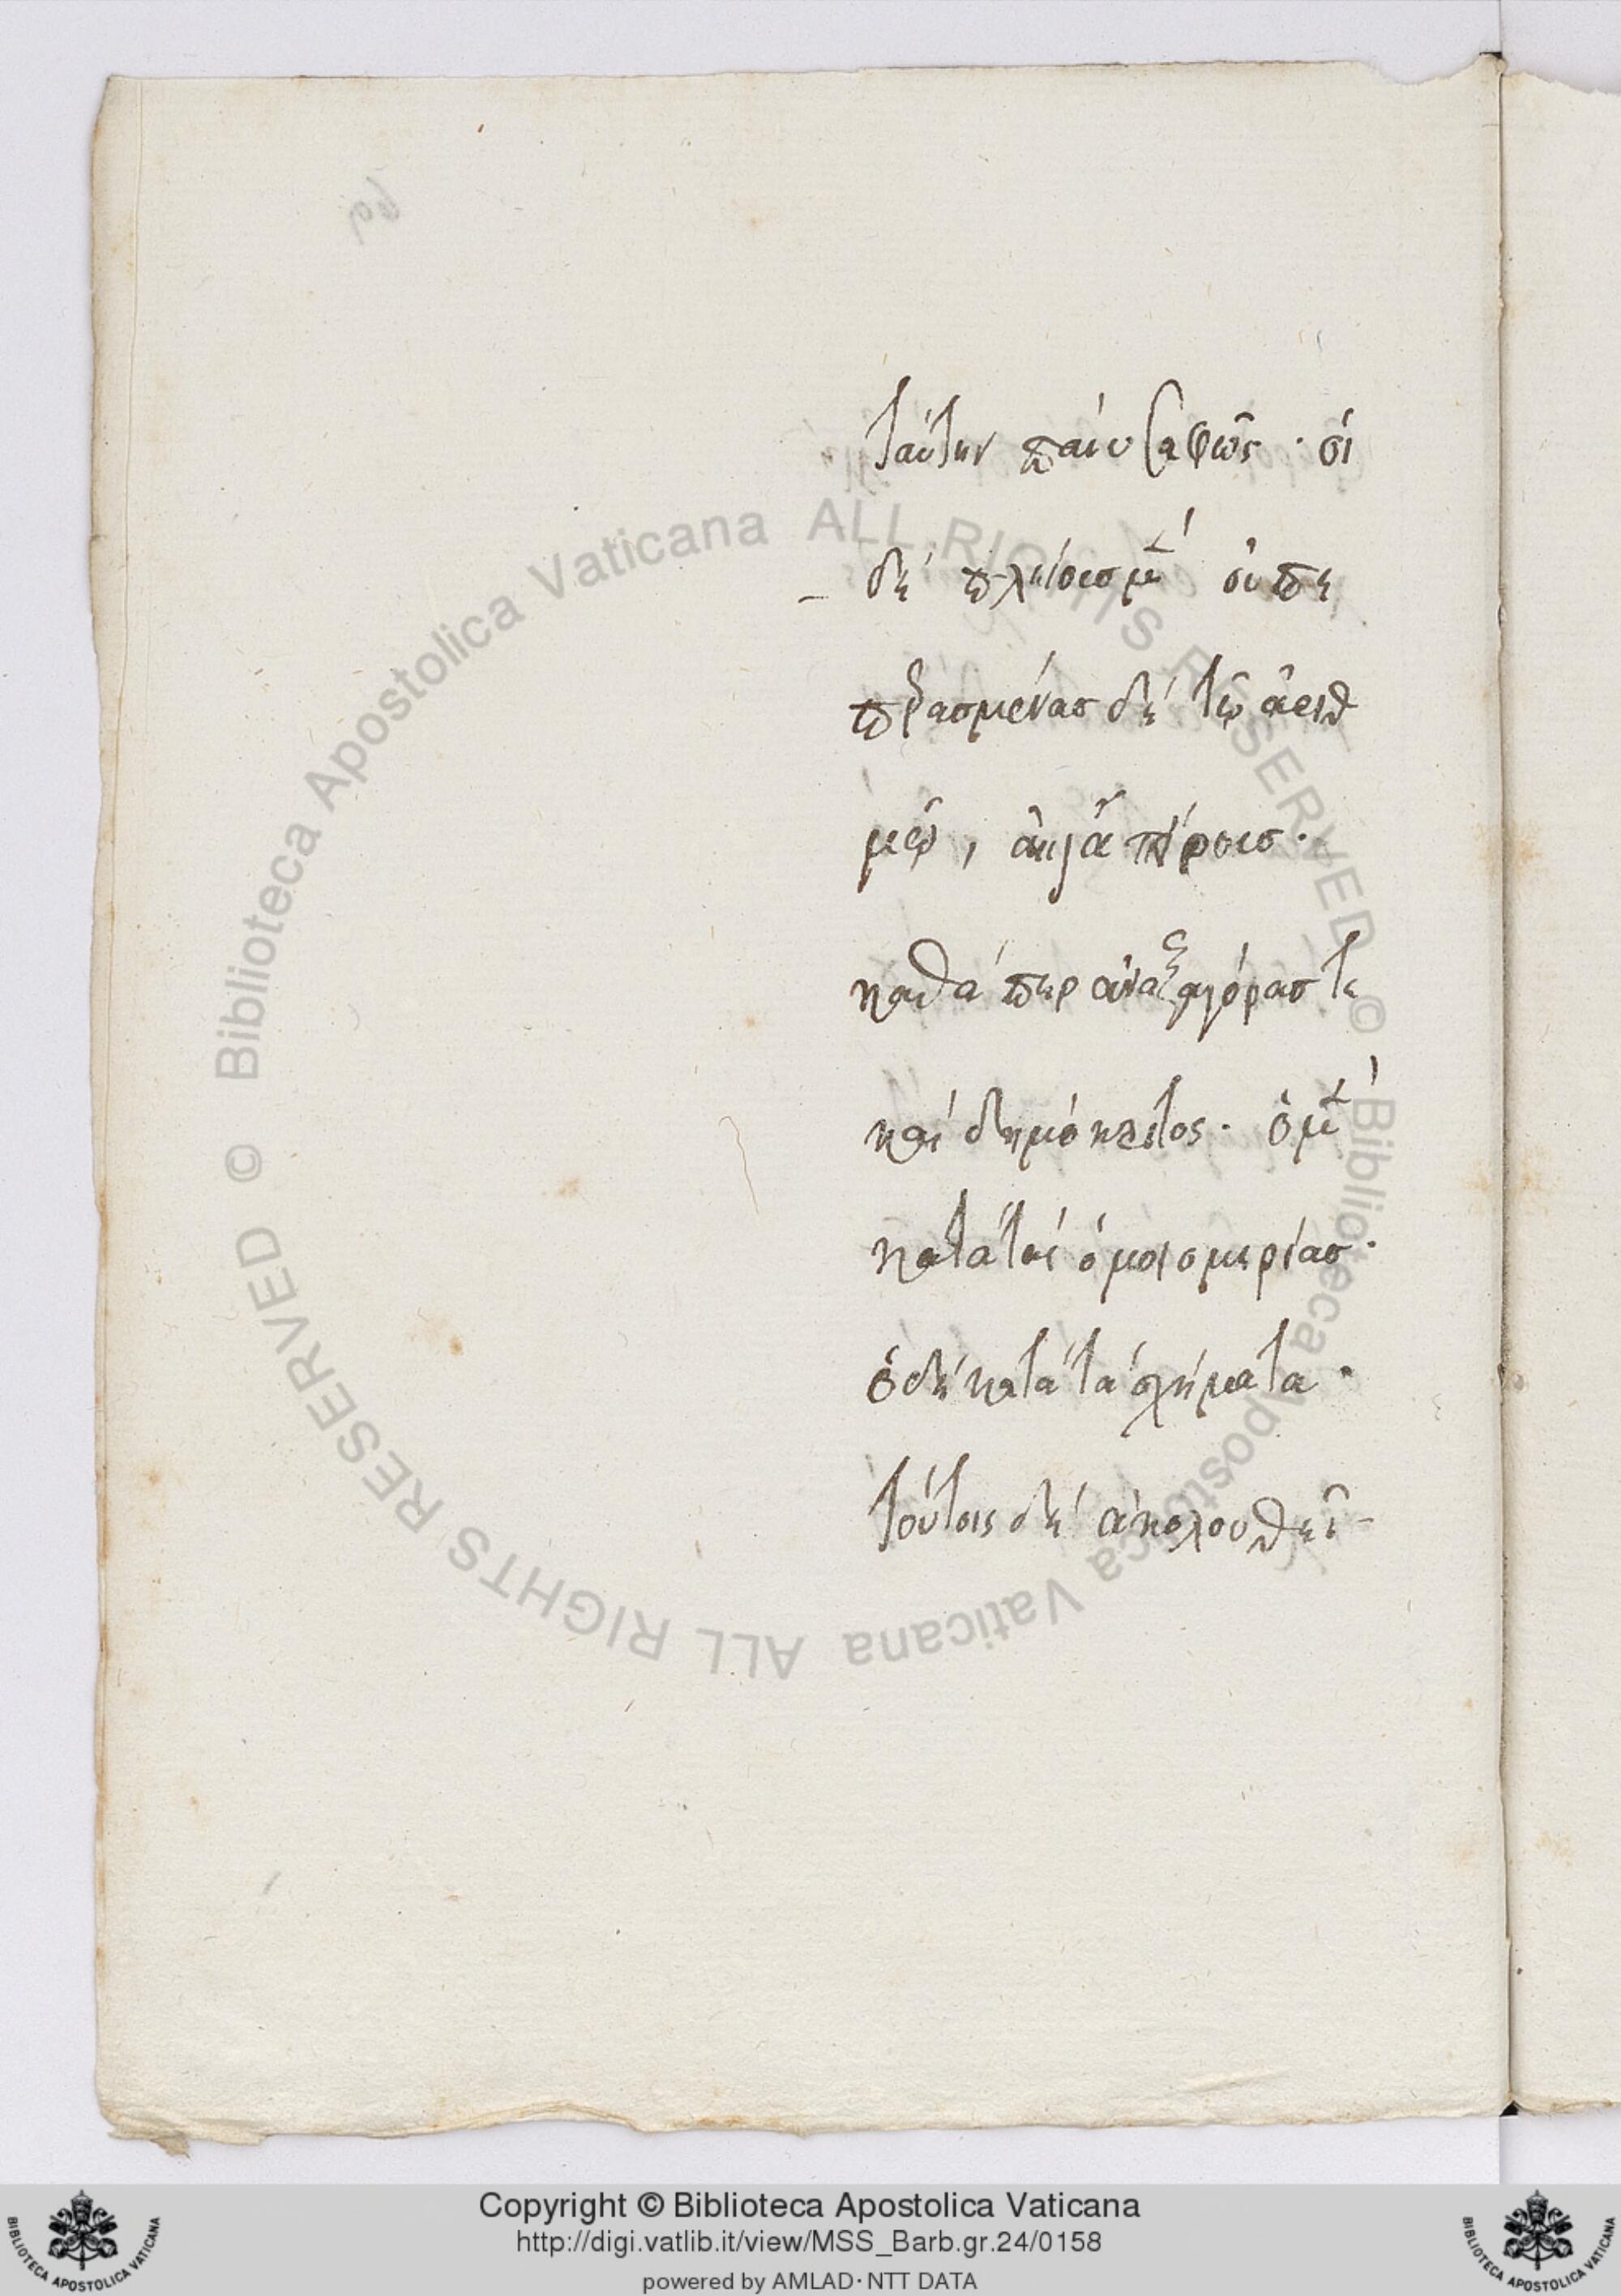 ταύτην πάνυ σαφῶς · οἱ
δὲ πλείους μὲν οὐ πε
περασμένας δὲ τῷ ἀριθ
μῷ, ἀλλ' ἀπείρους ·
καθάπερ ἀναξαγόρας τε
καὶ δημόκριτος · ὁ μὲν
κατὰ τὰς ὁμοιομερείας ·
ὁ δὲ κατὰ τὰ σχήματα ·
τούτοις δὲ ἀκολουθεῖ
© Biblioteca Apostolica Vaticana ALL RIGHTS RESERVED
© Biblioteca Apostolica Vaticana ALL RIGHTS RESERVED
Copyright © Biblioteca Apostolica Vaticana
http://digi.vatlib.it/view/MSS_Barb.gr.24/0158
powered by AMLAD · NTT DATA
BIBLIOTECA APOSTOLICA VATICANA
BIBLIOTECA APOSTOLICA VATICANA